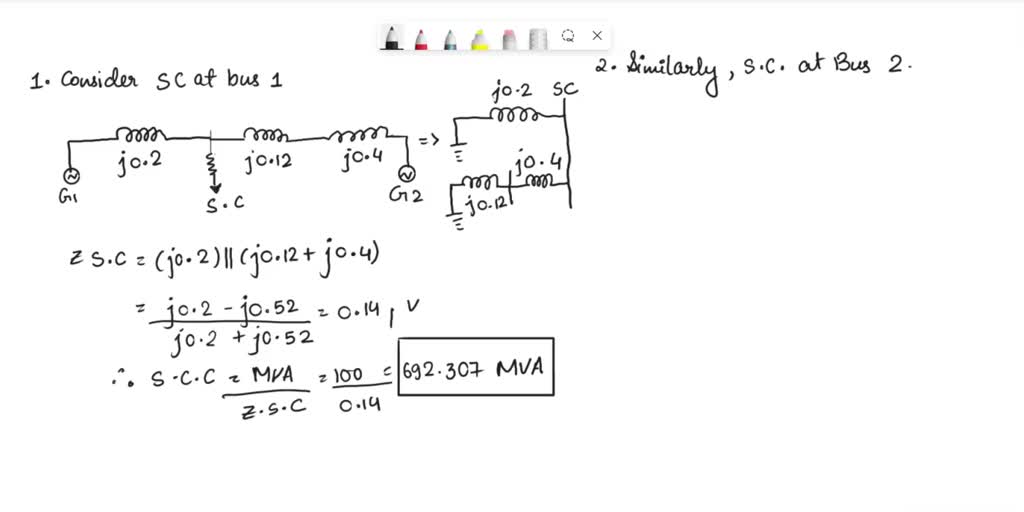 1. Consider SC at bus 1
2. Similarly, S.C. at Bus 2.
j0.2 SC
j0.2 j0.12 j0.4 =>
G1 S.C G2
j0.4
j0.12
Z S.C = (j0.2)||(j0.12 + j0.4)
= j0.2 - j0.52 = 0.14, V
j0.2 + j0.52
∴ S.C.C = MVA = 100 = 692.307 MVA
Z.S.C 0.14